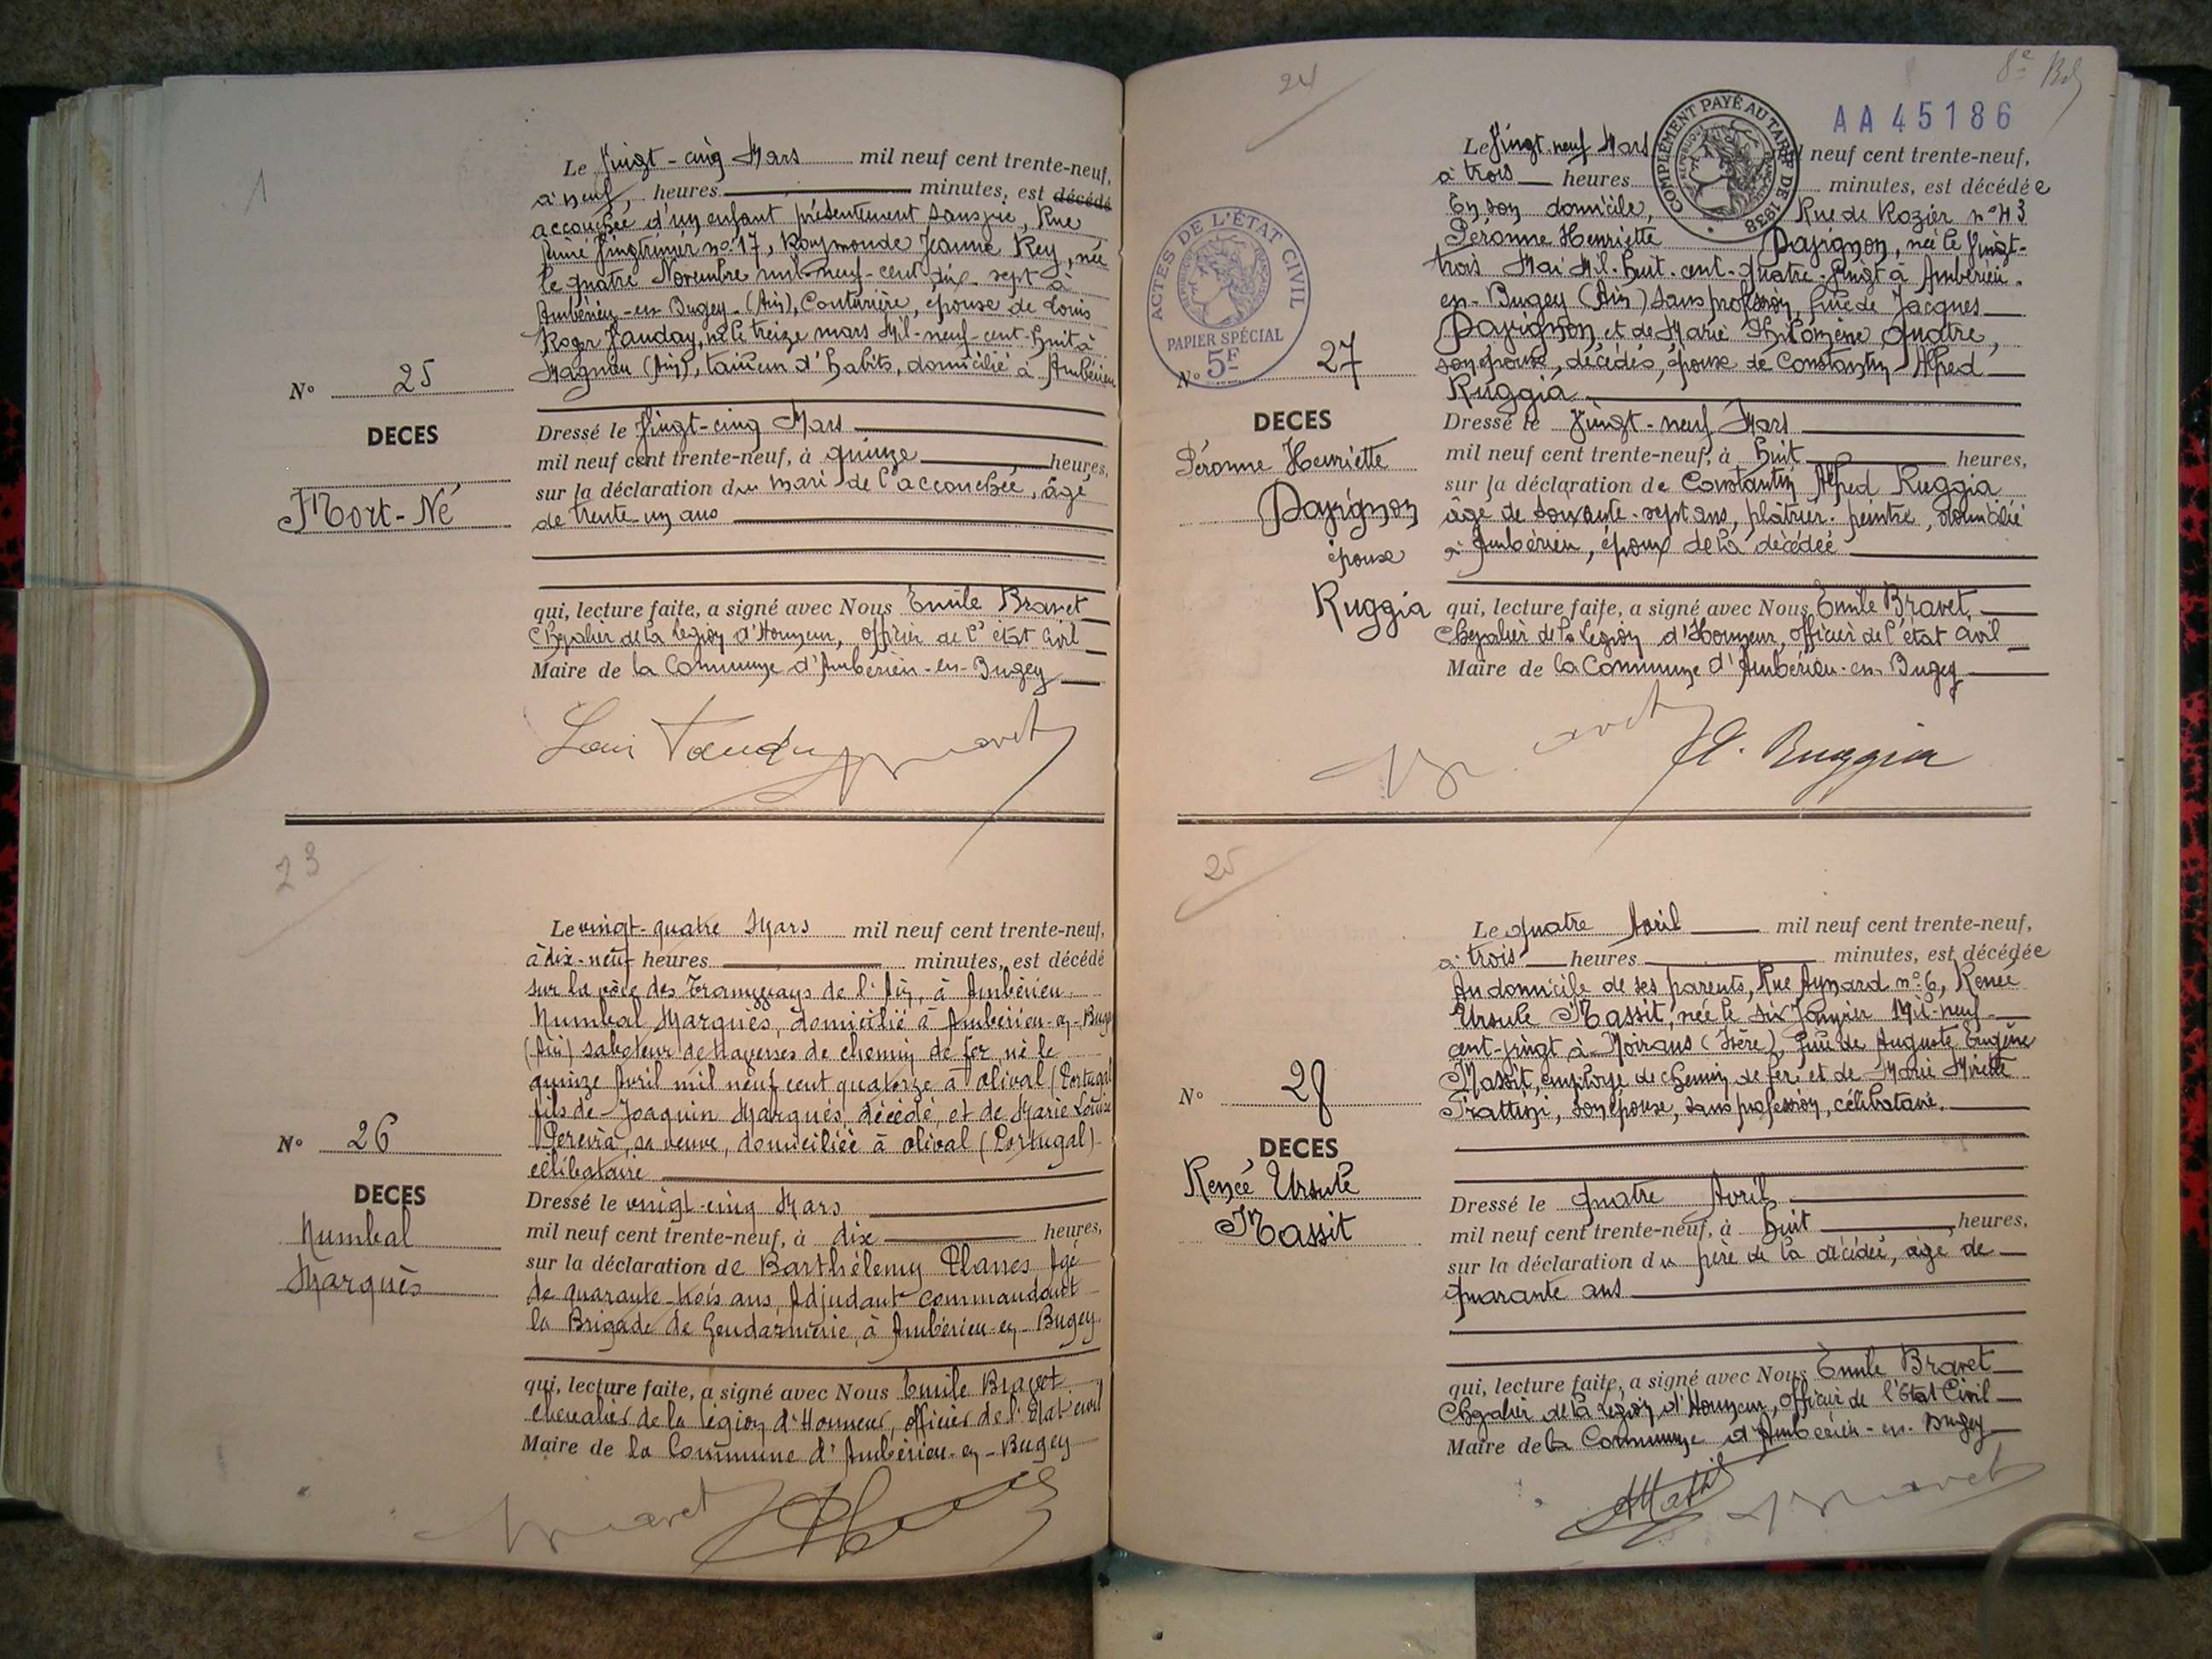 1
Le Vingt-cinq Mars mil neuf cent trente-neuf,
à neuf, heures minutes, est décédé
accouchée d'un enfant présentement sans vie, Rue
Aimé Vingtrinier no 17, Raymonde Jeanne Rey, née
le quatre Novembre mil-neuf-cent dix-sept à
Ambérieu-en-Bugey (Ain), Couturière, épouse de Louis
Roger Vauday, né le treize mars Mil-neuf-cent-huit à
Magnieu (Ain), tailleur d'habits, domicilié à Ambérieu
No 25
DECES
Mort-Né
Dressé le Vingt-cinq Mars
mil neuf cent trente-neuf, à quinze heures,
sur la déclaration du mari de l'accouchée, âgé
de trente-un ans
qui, lecture faite, a signé avec Nous Emile Bravet
Chevalier de la Légion d'Honneur, officier de l'état civil
Maire de la Commune d'Ambérieu-en-Bugey
23
Le vingt-quatre Mars mil neuf cent trente-neuf,
à dix-neuf heures minutes, est décédé
sur la voie des Tramways de l'Ain, à Ambérieu
Numbal Marquès, domicilié à Ambérieu-en-Bugey
(Ain) saboteur de traverses de chemin de fer, né le
quinze Avril mil neuf cent quatorze à Olival (Portugal
fils de Joaquin Marquès, décédé, et de Marie Louise
Pereira, sa veuve, domiciliée à Olival (Portugal)
célibataire
No 26
DECES
Numbal
Marquès
Dressé le vingt-cinq Mars
mil neuf cent trente-neuf, à dix heures,
sur la déclaration de Barthélemy Planes âgé
de quarante-trois ans, Adjudant commandant
la Brigade de Gendarmerie, à Ambérieu-en-Bugey
qui, lecture faite, a signé avec Nous Emile Bravet
chevalier de la légion d'Honneur, officier de l'Etat civil
Maire de la Commune d'Ambérieu-en-Bugey
24
8e
AA 45186
COMPLÉMENT PAYÉ AU TARIF DE 1938
Le Vingt-neuf Mars neuf cent trente-neuf,
à trois heures minutes, est décédée
En son domicile, Rue de Rozier no 43
Péronne Henriette Davignon, née le Vingt-
trois Mai Mil-huit-cent-quatre-vingt à Ambérieu-
en-Bugey (Ain) sans profession, fille de Jacques
Davignon, et de Marie Philomène Quatre,
son épouse, décédés, épouse de Constantin Alfred
Ruggia
ACTES DE L'ÉTAT CIVIL
PAPIER SPÉCIAL
5F
No 27
DECES
Péronne Henriette
Davignon
épouse
Ruggia
Dressé le Vingt-neuf Mars
mil neuf cent trente-neuf, à huit heures,
sur la déclaration de Constantin Alfred Ruggia
âgé de soixante-sept ans, plâtrier-peintre, domicilié
à Ambérieu, époux de la décédée
qui, lecture faite, a signé avec Nous Emile Bravet,
Chevalier de la Légion d'Honneur, officier de l'état civil
Maire de la Commune d'Ambérieu-en-Bugey
Ruggia
25
Le Quatre Avril mil neuf cent trente-neuf,
à trois heures minutes, est décédée
Au domicile de ses parents, Rue Aynard no 6, Renée
Ursule Massit, née le six Janvier Mil-neuf-
cent-vingt à Moirans (Isère), fille de Auguste Eugène
Massit, employé de chemin de fer, et de Marie Mirette
Frattini, son épouse, sans profession, célibataire.
No 28
DECES
Renée Ursule
Massit
Dressé le Quatre Avril
mil neuf cent trente-neuf, à huit heures,
sur la déclaration du père de la décédée, âgé de
quarante ans
qui, lecture faite, a signé avec Nous Emile Bravet
Chevalier de la Légion d'Honneur, officier de l'état Civil
Maire de la Commune d'Ambérieu-en-Bugey